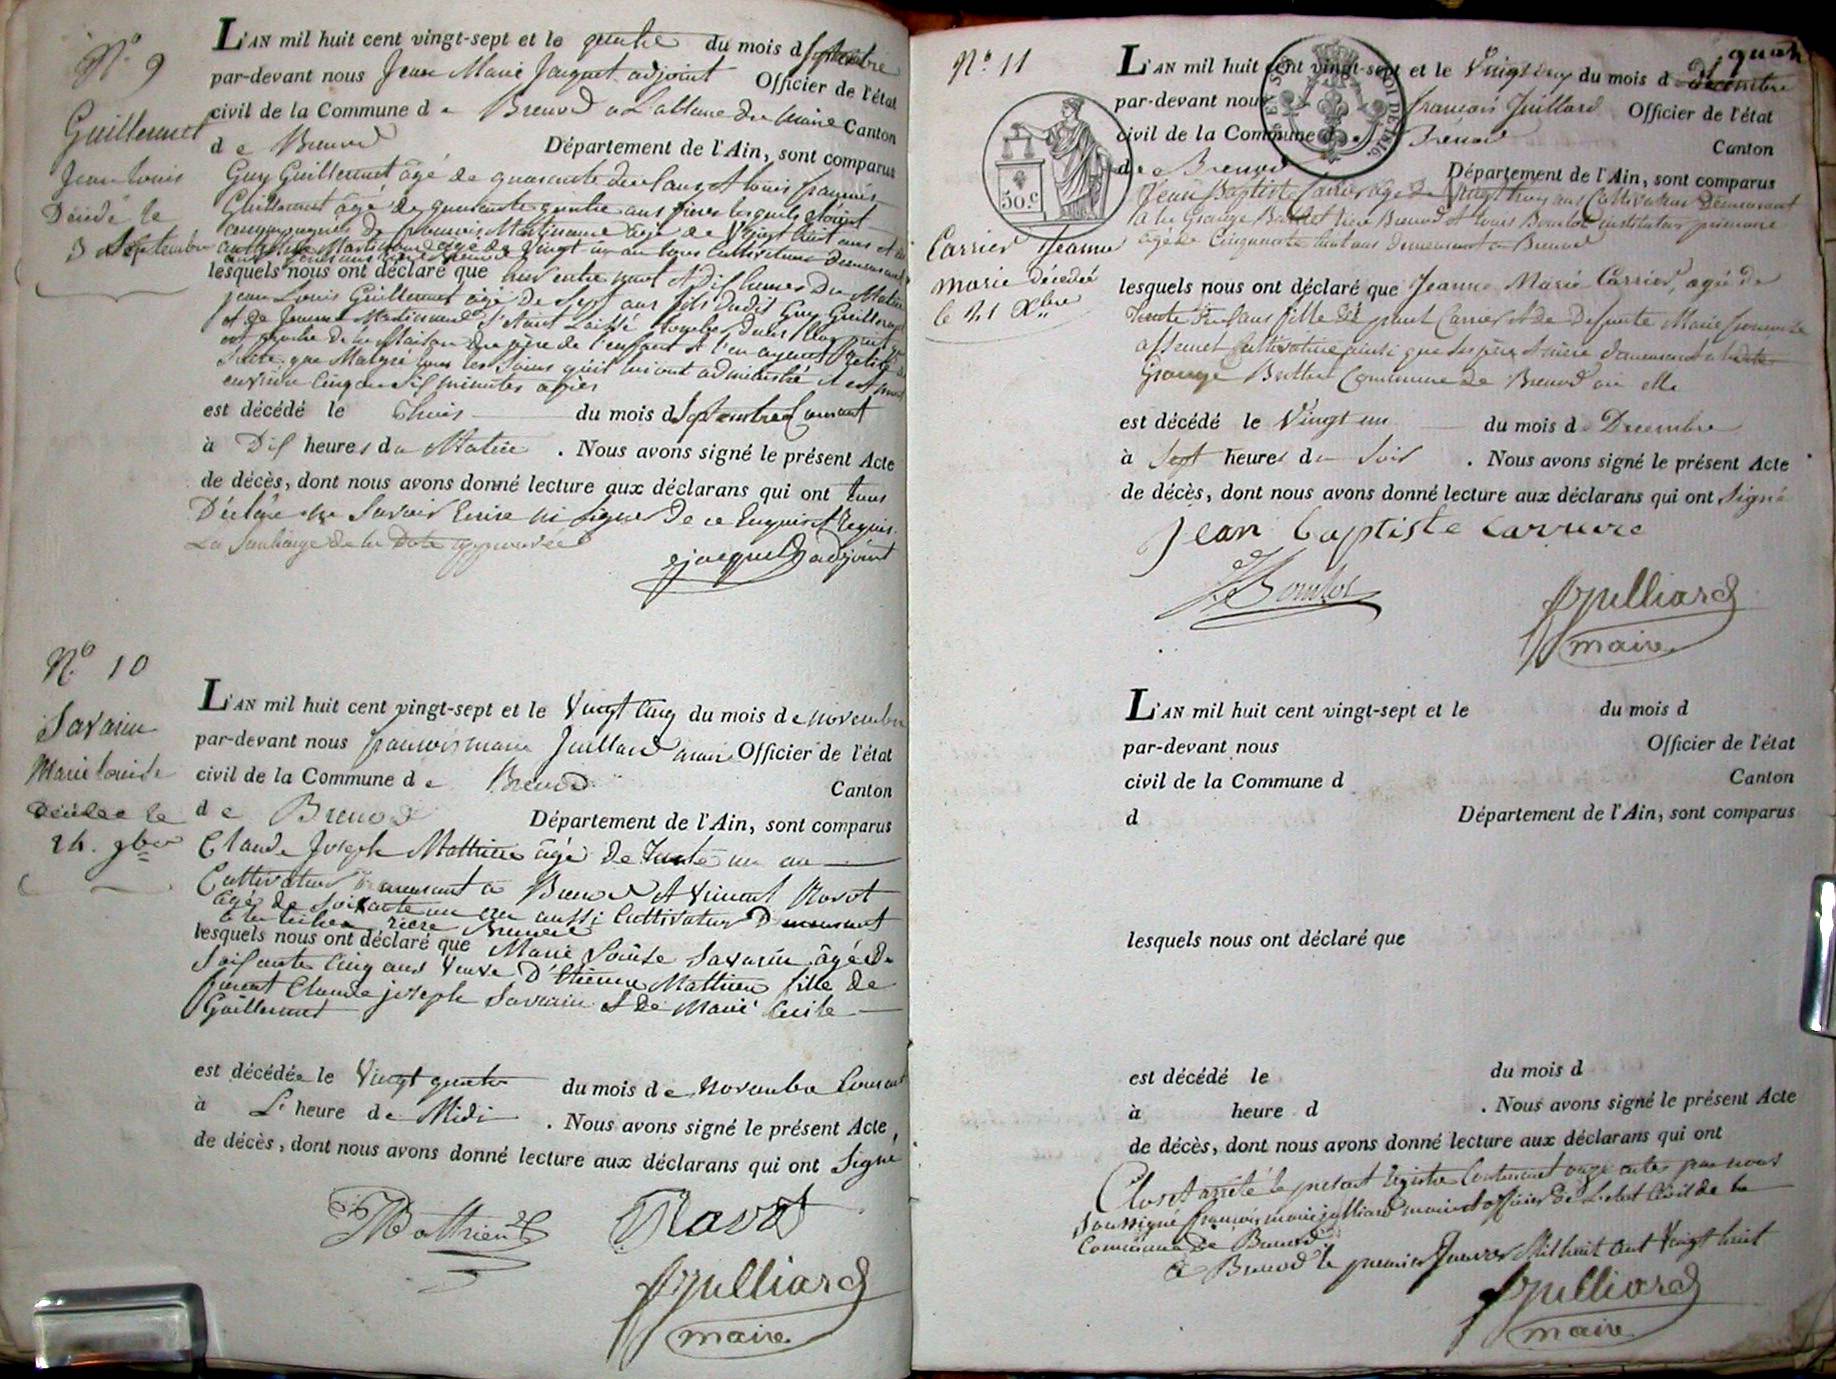 N.o 9
Guillermet
Jean Louis
Décédé le
3 Septembre
L'AN mil huit cent vingt-sept et le quatre du mois d Septembre
par-devant nous Jean Marie Jacquet adjoint Officier de l'état
civil de la Commune de Brenod a L'absence du Maire Canton
de Brenod Département de l'Ain, sont comparus
Guy Guillermet âgé de quarante deux ans et Louis françois
Guillermet âgé de quarante quatre ans frères lesquels étaient
accompagnés de Martinand âgé de Vingt huit ans et de
Martinand âgé de Vingt un an tous Cultivateurs demeurant
lesquels nous ont déclaré que hier entre neuf et dix heures du Matin
Jean Louis Guillermet âgé de Sept ans fils dudit Guy Guillermet
et de Jeanne Martinand S'étant Laissé tomber dans
proche de la Maison du père de l'enfant et l'en ayant Retiré de
Suite que Malgré tous les Soins qu'il lui ont administré il est mort
environ Cinq ou Six minutes après
est décédé le Trois du mois d Septembre Courant
à Dix heures du Matin . Nous avons signé le présent Acte
de décès, dont nous avons donné lecture aux déclarans qui ont tous
Déclaré ne Savoir Ecrire ni Signer de ce Enquis et Requis.
La Surcharge de la Date approuvée
Jacquet adjoint
N.o 10
Savarin
Marie Louise
Décédée le
24. 9bre
L'AN mil huit cent vingt-sept et le Vingt Cinq du mois de novembre
par-devant nous françois marie Juillard maire Officier de l'état
civil de la Commune de Brenod Canton
de Brenod Département de l'Ain, sont comparus
Claude Joseph Mathieu âgé de Trente un an
Cultivateur Demeurant à Brenod et Vincent Ravot
âgé de Soixante un an aussi Cultivateur Demeurant
à la rière Brenod
lesquels nous ont déclaré que Marie Louise Savarin âgée de
Soixante Cinq ans Veuve D'Etienne Mathieu fille de
furent Claude joseph Savarin et de Marie Cécile
Guillermet
est décédée le Vingt quatre du mois de novembre Courant
à L' heure de Midi . Nous avons signé le présent Acte,
de décès, dont nous avons donné lecture aux déclarans qui ont Signé
Mathieu Ravot
Julliard
maire
N.o 11
Carrier Jeanne
Marie décédée
le 21 Xbre
50.c
LOI DE 1816.
L'AN mil huit cent vingt-sept et le Vingt deux du mois d decembre
par-devant nous françois Juillard Officier de l'état
civil de la Commune de Brenod Canton
de Brenod Département de l'Ain, sont comparus
Jean Baptiste Carrier âgé de Vingt trois ans Cultivateur Demeurant
à la Grange rière Brenod et Louis Bourbot instituteur primaire
âgé de Cinquante huit ans demeurant à Brenod
lesquels nous ont déclaré que Jeanne Marie Carrier, agée de
Trente ans fille de Carrier et de Defunte Marie
Cultivatrice ainsi que Ses père & mère demeurant à ladite
Grange Commune de Brenod où elle
est décédé le Vingt un du mois de Decembre
à Sept heures du Soir . Nous avons signé le présent Acte
de décès, dont nous avons donné lecture aux déclarans qui ont Signé
Jean Baptiste Carriere
Bourbot
Julliard
maire
L'AN mil huit cent vingt-sept et le du mois d
par-devant nous Officier de l'état
civil de la Commune d Canton
d Département de l'Ain, sont comparus
lesquels nous ont déclaré que
est décédé le du mois d
à heure d . Nous avons signé le présent Acte
de décès, dont nous avons donné lecture aux déclarans qui ont
Clos et arrêté le présent Registre Contenant onze actes par nous
Soussigné françois marie julliard maire et officier de L'etat Civil de la
Commune de Brenod
à Brenod le premier Janvier Mil huit cent Vingt huit
Julliard
maire